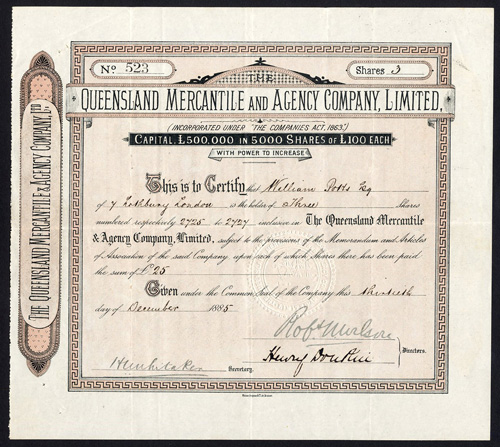 THE QUEENSLAND MERCANTILE & AGENCY COMPANY, LTD
No 523
Shares 3
THE
QUEENSLAND MERCANTILE AND AGENCY COMPANY, LIMITED.
(INCORPORATED UNDER "THE COMPANIES ACT, 1863".)
CAPITAL, £500,000 IN 5000 SHARES OF £100 EACH
WITH POWER TO INCREASE
This is to Certify that William Potts Esq
of 7 Lothbury London is the holder of Three Shares
numbered respectively 2725 to 2727 inclusive in The Queensland Mercantile
& Agency Company, Limited, subject to the provisions of the Memorandum and Articles
of Association of the said Company upon each of which Shares there has been paid
the sum of £25
Given under the Common Seal of the Company this
day of December 1885
Henry
Directors.
Secretary.